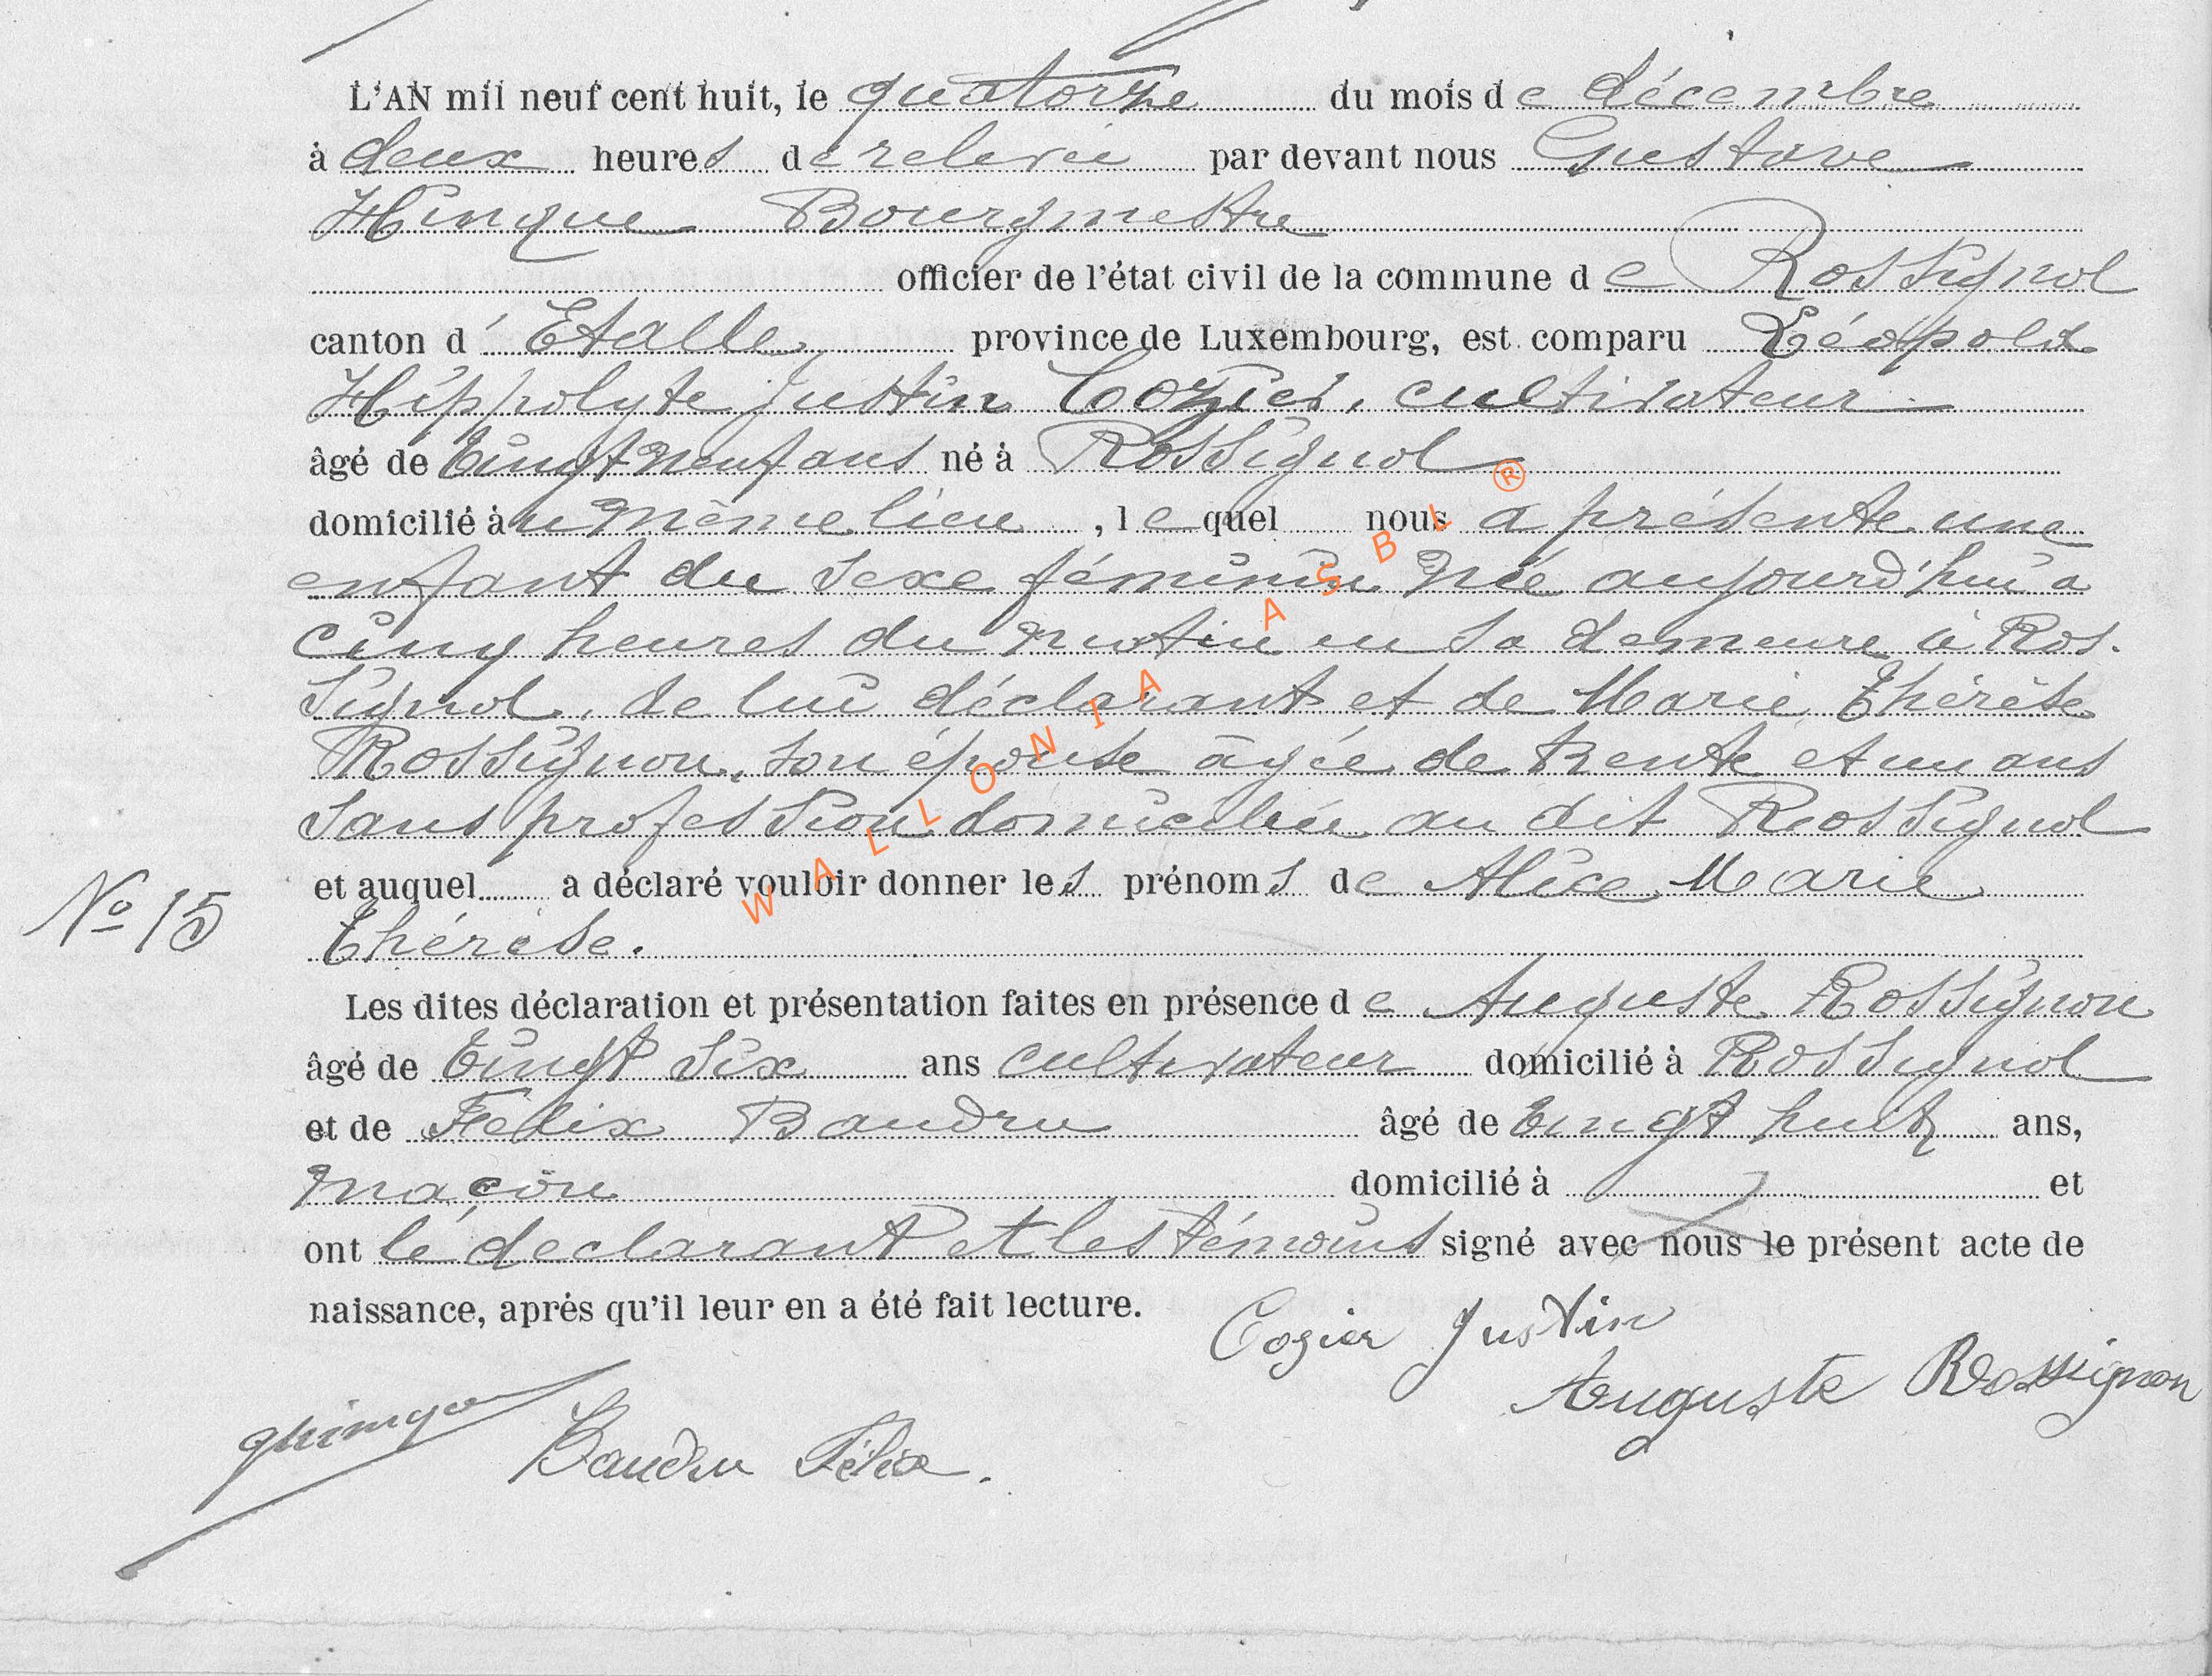 L'AN mil neuf cent huit, le quatorze du mois de décembre
à deux heures de relevée par devant nous Gustave
Hinque Bourgmestre
officier de l'état civil de la commune de Rossignol
canton d'Etalle province de Luxembourg, est comparu Léopold
Hippolyte Justin Cozier, cultivateur
âgé de vingt neuf ans né à Rossignol
domicilié au même lieu, lequel nous a présenté une
enfant du sexe féminin née aujourd'hui a
cinq heures du matin en sa demeure à Ros-
signol, de lui déclarant et de Marie Thérèse
Rossignon, son épouse âgée de trente et un ans
sans profession domiciliée au dit Rossignol
et auquel a déclaré vouloir donner les prénoms de Alice Marie
N° 15
Thérèse.
Les dites déclaration et présentation faites en présence de Auguste Rossignon
âgé de vingt six ans cultivateur domicilié à Rossignol
et de Félix Baudru âgé de vingt huit ans,
maçon domicilié à et
ont le déclarant et les témoins signé avec nous le présent acte de
naissance, après qu'il leur en a été fait lecture.
Cozier Justin
Auguste Rossignon
Baudru Félix.
WALLONIA ASBL ®